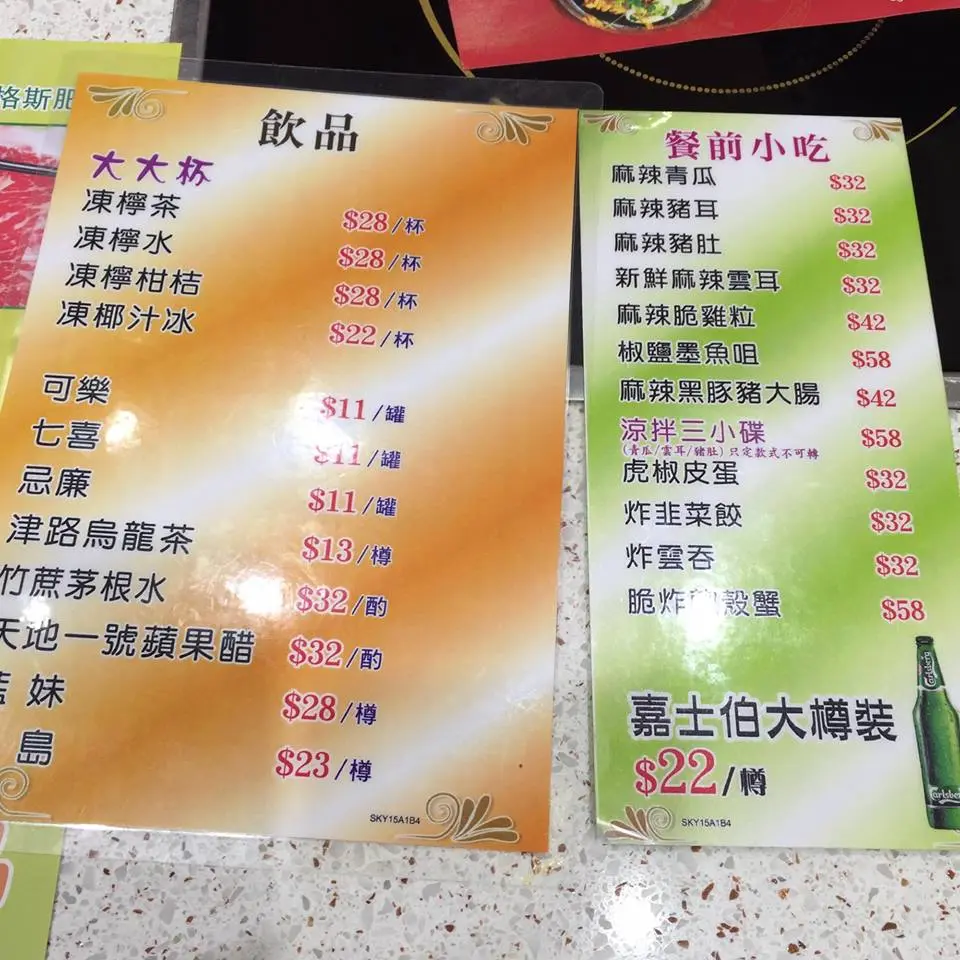 格斯肥
飲品
大大杯
凍檸茶 $28/杯
凍檸水 $28/杯
凍檸柑桔 $28/杯
凍椰汁冰 $22/杯
可樂 $11/罐
七喜 $11/罐
忌廉 $11/罐
津路烏龍茶 $13/樽
竹蔗茅根水 $32/酌
天地一號蘋果醋 $32/酌
藍妹 $28/樽
島 $23/樽
SKY15A1B4
餐前小吃
麻辣青瓜 $32
麻辣豬耳 $32
麻辣豬肚 $32
新鮮麻辣雲耳 $32
麻辣脆雞粒 $42
椒鹽墨魚咀 $58
麻辣黑豚豬大腸 $42
涼拌三小碟 $58
(青瓜/雲耳/豬肚) 只定款式不可轉
虎椒皮蛋 $32
炸韭菜餃 $32
炸雲吞 $32
脆炸軟殼蟹 $58
嘉士伯大樽裝
$22/樽
Carlsberg
Carlsberg
SKY15A1B4